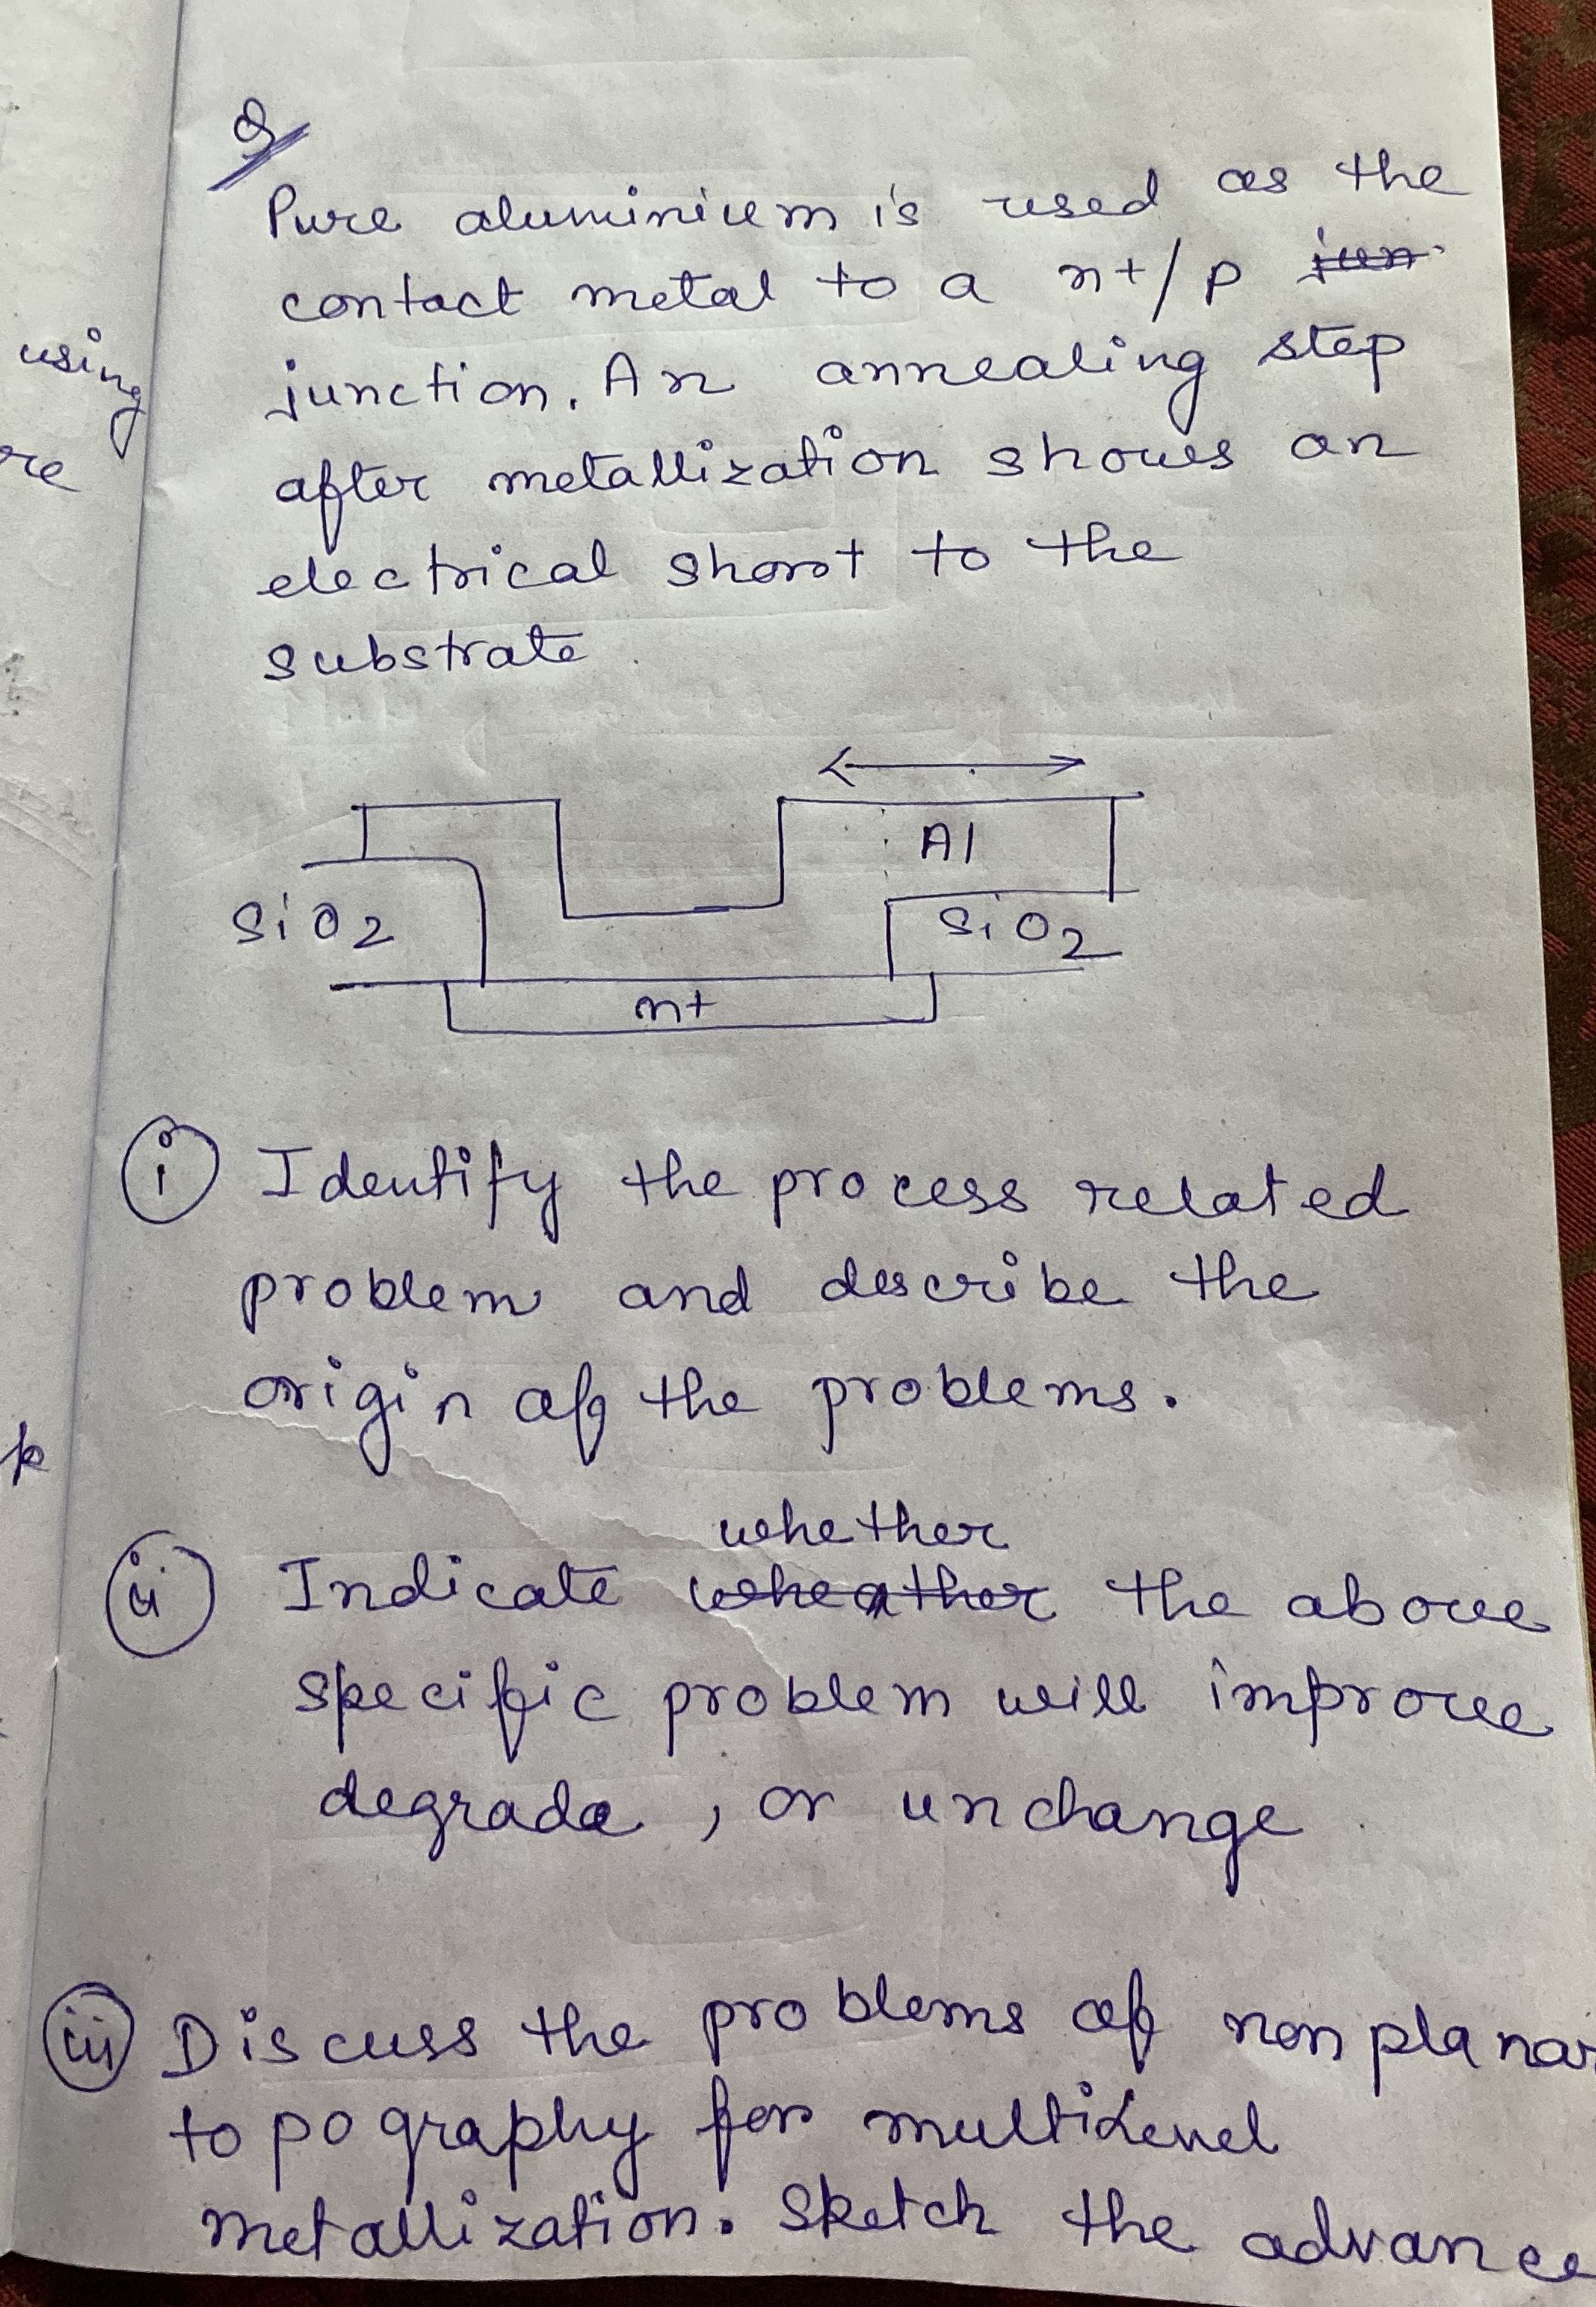 Q
Pure aluminium is used as the
contact metal to a n+/p jun
junction. An annealing step
after metallization shows an
electrical short to the
substrate.
Al
SiO2
SiO2
n+
using
re
(i) Identify the process related
problem and describe the
origin of the problems.
k
whether
(ii) Indicate wheather the above
specific problem will improve
degrade, or unchange
(iii) Discuss the problems of non planar
topography for multilevel
metallization. Sketch the advance